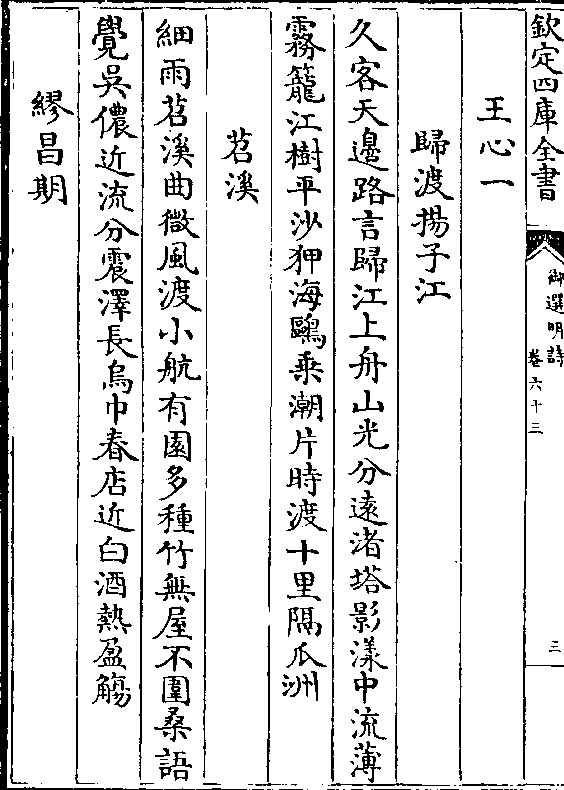 欽定四庫全書
御選明詩
卷六十三
三
王心一
歸渡揚子江
久客天邊路言歸江上舟山光分遠渚塔影漾中流薄
霧籠江樹平沙狎海鷗乗潮片時渡十里隔瓜洲
苕溪
細雨苕溪曲微風渡小航有園多種竹無屋不圍桑語
覺吳儂近流分震澤長烏巾春店近白酒熱盈觴
繆昌期